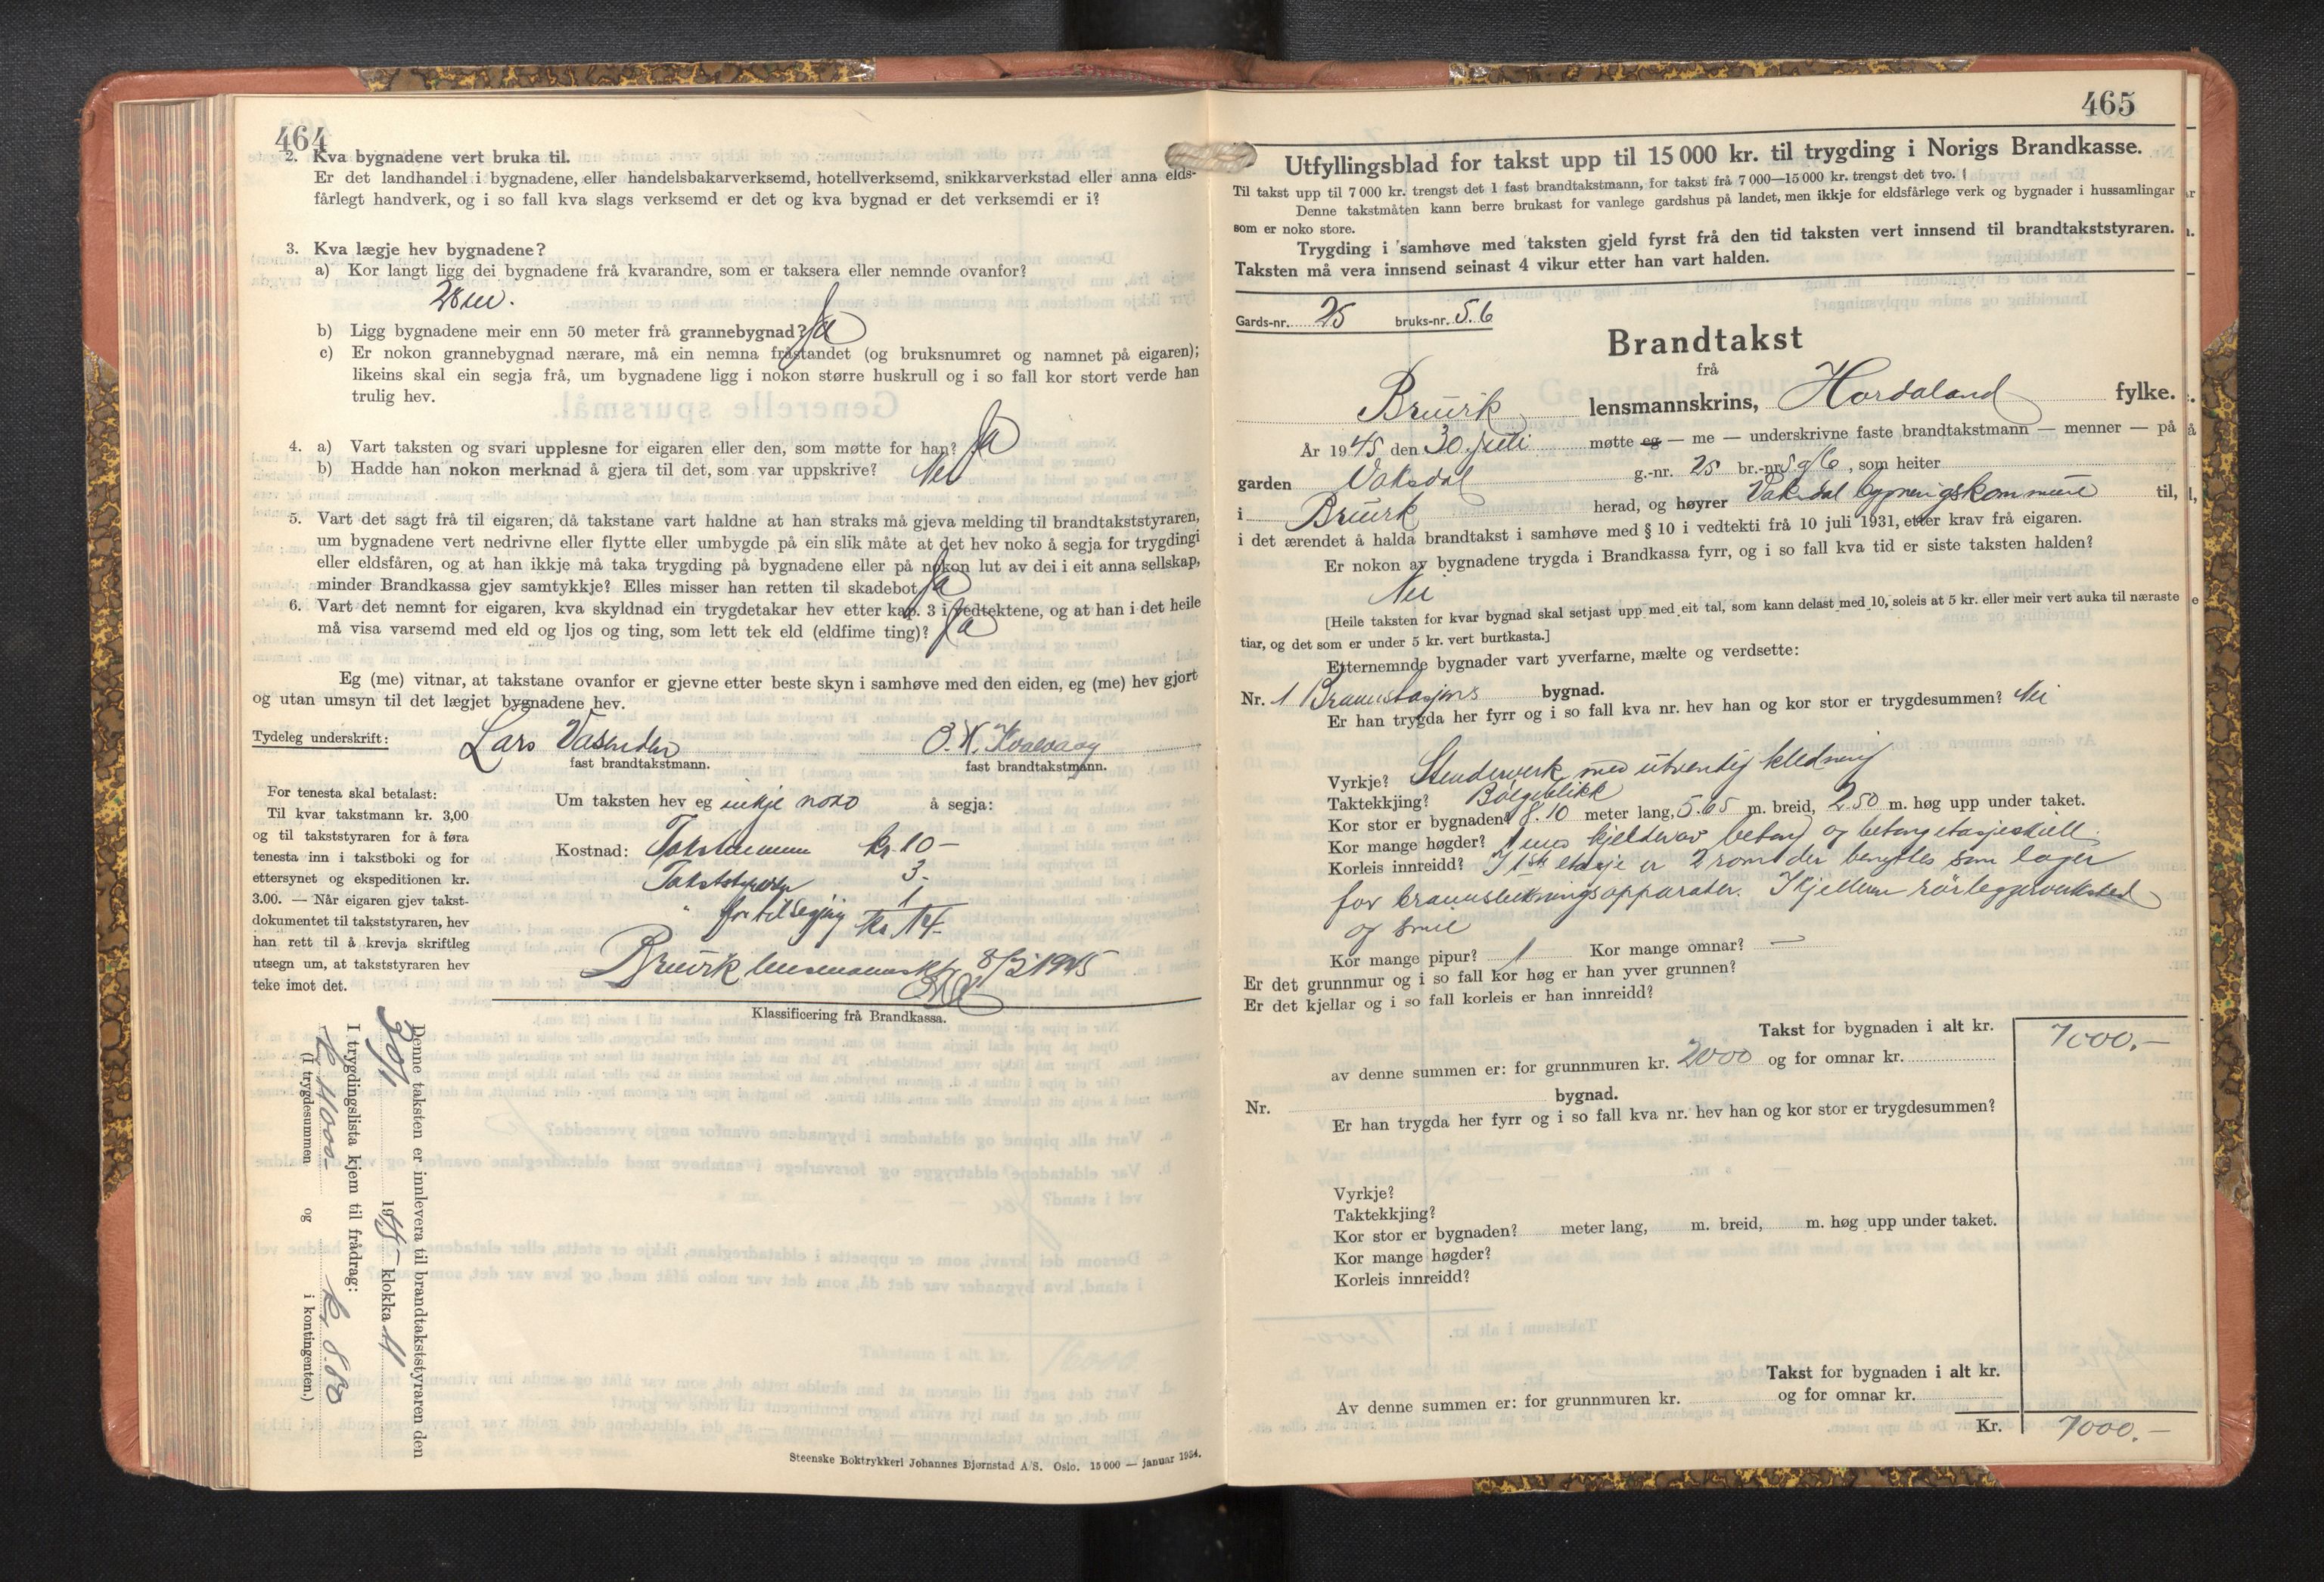 464
2. Kva bygnadene vert bruka til.
Er det landhandel i bygnadene, eller handelsbakarverksemd, hotellverksemd, snikkarverkstad eller anna elds-
fårlegt handverk, og i so fall kva slags verksemd er det og kva bygnad er det verksemdi er i?
3. Kva lægje hev bygnadene?
a) Kor langt ligg dei bygnadene frå kvarandre, som er taksera eller nemnde ovanfor?
28 m.
b) Ligg bygnadene meir enn 50 meter frå grannebygnad? Ja
c) Er nokon grannebygnad nærare, må ein nemna fråstandet (og bruksnumret og namnet på eigaren);
likeins skal ein segja frå, um bygnadene ligg i nokon større huskrull og i so fall kor stort verde han
trulig hev.
4. a) Vart taksten og svari upplesne for eigaren eller den, som møtte for han? Ja
b) Hadde han nokon merknad å gjera til det, som var uppskrive? Nei
5. Vart det sagt frå til eigaren, då takstane vart haldne at han straks må gjeva melding til brandtakststyraren,
um bygnadene vert nedrivne eller flytte eller umbygde på ein slik måte at det hev noko å segja for trygdingi
eller eldsfåren, og at han ikkje må taka trygding på bygnadene eller på nokon lut av dei i eit anna sellskap,
minder Brandkassa gjev samtykkje? Elles misser han retten til skadebot. Ja
6. Vart det nemnt for eigaren, kva skyldnad ein trygdetakar hev etter kap. 3 i vedtektene, og at han i det heile
må visa varsemd med eld og ljos og ting, som lett tek eld (eldfime ting)? Ja
Eg (me) vitnar, at takstane ovanfor er gjevne etter beste skyn i samhøve med den eiden, eg (me) hev gjort
og utan umsyn til det lægjet bygnadene hev.
Tydeleg underskrift: Lars Vasenden O. K. Kvalvaag
fast brandtakstmann. fast brandtakstmann.
For tenesta skal betalast:
Til kvar takstmann kr. 3,00
og til takststyraren for å føra
tenesta inn i takstboki og for
ettersynet og ekspeditionen kr.
3.00. — Når eigaren gjev takst-
dokumentet til takststyraren, hev
han rett til å krevja skriftleg
utsegn um, at takststyraren hev
teke imot det.
Um taksten hev eg inkje noko å segja:
Kostnad: Takstmenn kr. 10 -
Takststyraren 3.
" for tilsegjing 1
Kr. 14.
Bruvik lensmannsktr 8/2 1945
Klassificering frå Brandkassa.
Denne taksten er innlevera til brandtakststyraren den
30/1 1945 klokka 11
I trygdingslista kjem til frådrag:
kr 4000.- og kr 8.80
(I trygdesummen i kontingenten.)
Steenske Boktrykkeri Johannes Bjørnstad A/S. Oslo. 15 000 — januar 1934.
465
Utfyllingsblad for takst upp til 15 000 kr. til trygding i Norigs Brandkasse.
Til takst upp til 7 000 kr. trengst det 1 fast brandtakstmann, for takst frå 7 000—15 000 kr. trengst det tvo.
Denne takstmåten kann berre brukast for vanlege gardshus på landet, men ikkje for eldsfårlege verk og bygnader i hussamlingar
som er noko store.
Trygding i samhøve med taksten gjeld fyrst frå den tid taksten vert innsend til brandtakststyraren.
Taksten må vera innsend seinast 4 vikur etter han vart halden.
Gards-nr. 25 bruks-nr. 5.6
Brandtakst
frå
Bruvik lensmannskrins, Hordaland fylke.
År 1945 den 30 juli møtte eg — me — underskrivne faste brandtakstmann — menner — på
garden Vaksdal g.-nr. 25 br.-nr. 5 og 6, som heiter
i Bruvik herad, og høyrer Vaksdal bygningskommune til,
i det ærendet å halda brandtakst i samhøve med § 10 i vedtekti frå 10 juli 1931, etter krav frå eigaren.
Er nokon av bygnadene trygda i Brandkassa fyrr, og i so fall kva tid er siste taksten halden?
Nei
[Heile taksten for kvar bygnad skal setjast upp med eit tal, som kann delast med 10, soleis at 5 kr. eller meir vert auka til næraste
tiar, og det som er under 5 kr. vert burtkasta.]
Etternemnde bygnader vart yverfarne, mælte og verdsette:
Nr. 1 Brannstasjons bygnad.
Er han trygda her fyrr og i so fall kva nr. hev han og kor stor er trygdesummen? Nei
Vyrkje? Stenderverk med utvendig kledning
Taktekkjing? Bølgeblikk
Kor stor er bygnaden? 8.10 meter lang, 5.65 m. breid, 2.50 m. høg upp under taket.
Kor mange høgder? 1 med kjeller av betong og betongetasjeskille
Korleis innreidd? I 1ste etasje er 2 rom der benyttes som lager
for brannslukningsapparater. I kjelleren rørleggerverksted
og smie
Kor mange pipur? 1 Kor mange omnar? —
Er det grunnmur og i so fall kor høg er han yver grunnen?
Er det kjellar og i so fall korleis er han innreidd?
Takst for bygnaden i alt kr. 7000.-
av denne summen er: for grunnmuren kr. 2000 og for omnar kr.
Nr. bygnad.
Er han trygda her fyrr og i so fall kva nr. hev han og kor stor er trygdesummen?
Vyrkje?
Taktekkjing?
Kor stor er bygnaden? meter lang, m. breid, m. høg upp under taket.
Kor mange høgder?
Korleis innreidd?
Takst for bygnaden i alt kr.
Av denne summen er: for grunnmuren kr. og for omnar kr.
Kr. 7000.-